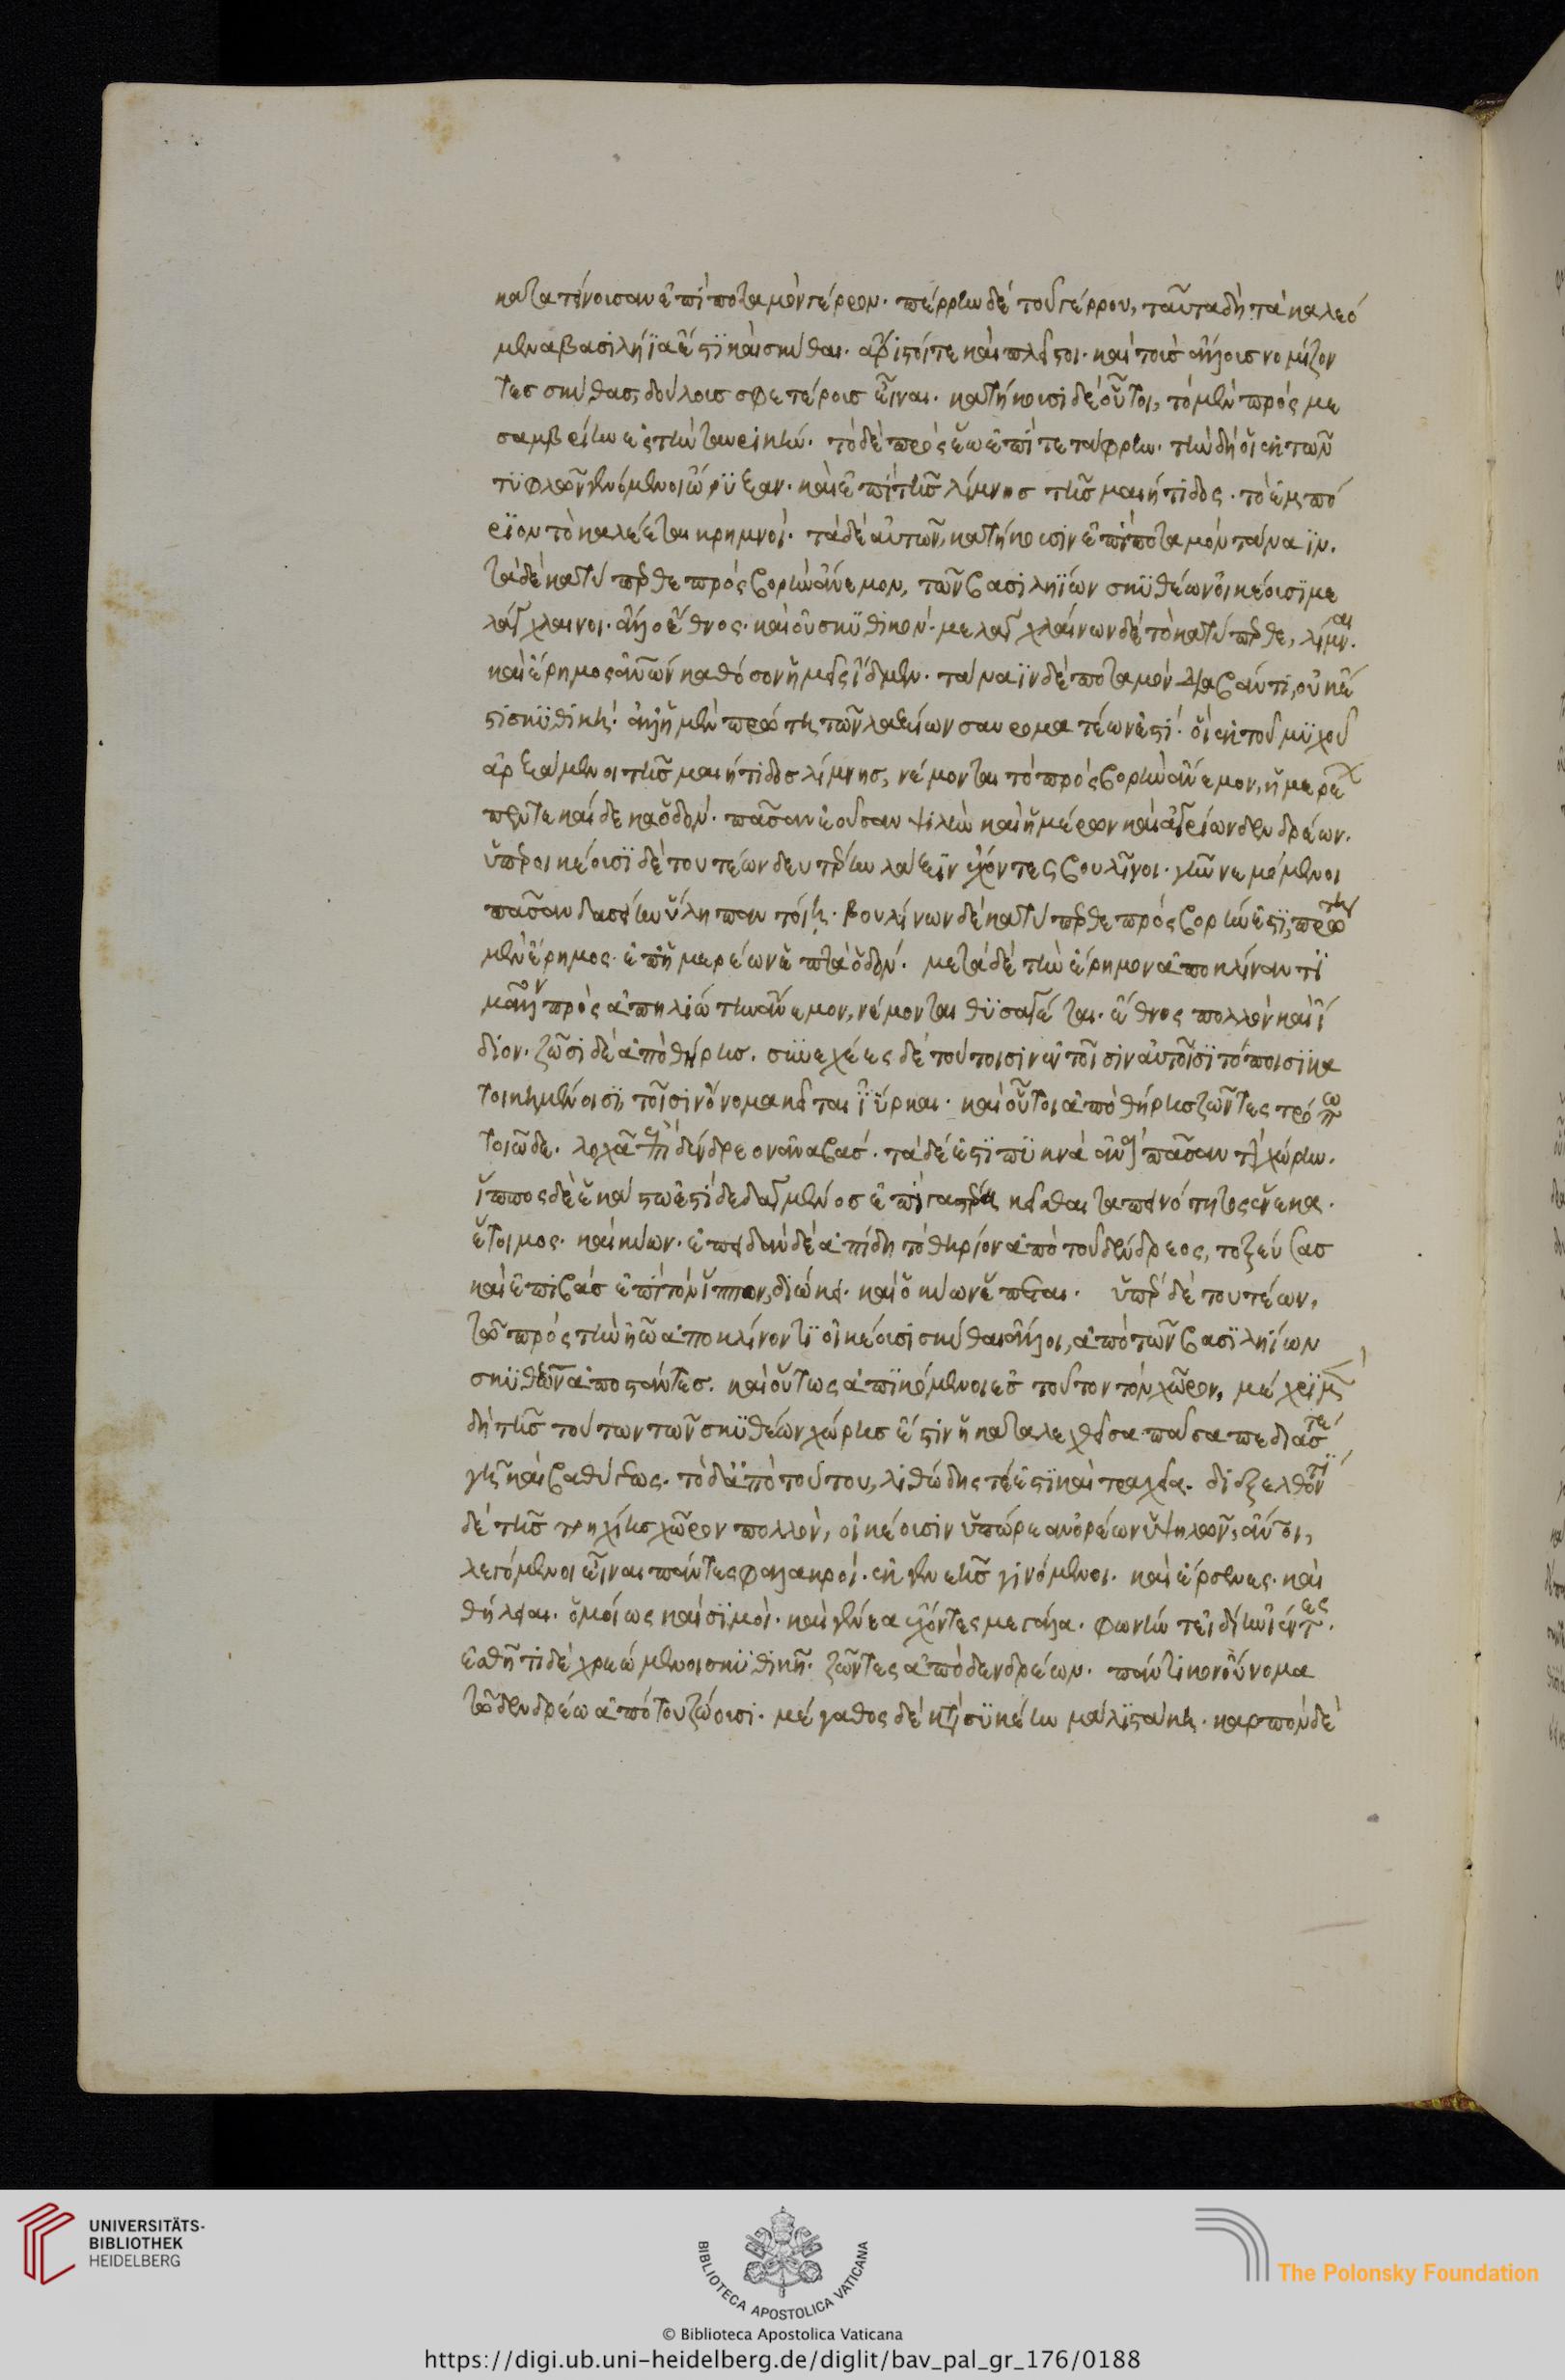 κατατείνουσαν ἐπὶ ποταμὸν γέρρον. πέρρην δὲ τοῦ γέρρου, ταῦτα δὴ τὰ καλεό
μενα βασιλήϊα ἐστὶ καὶ σκύθαι ἄριστοί τε καὶ πλεῖστοι. καὶ τοὺς ἄλλους νομίζον
τες σκύθας, δούλους σφετέρους εἶναι. κατήκουσι δὲ οὗτοι, τὸ μὲν πρὸς με
σαμβρίην ἐς τὴν ταυρικήν. τὸ δὲ πρὸς ἕω ἐπί τε τάφρην. τὴν δὴ οἱ ἐκ τῶν
τυφλῶν γενόμενοι ὤρυξαν. καὶ ἐπὶ τῆς λίμνης τῆς μαιήτιδος. τὸ ἐμπό
ριον τὸ καλέεται κρημνοί. τὰ δὲ αὐτῶν, κατήκουσιν ἐπὶ ποταμὸν τάναϊν.
τὰ δὲ κατύπερθε πρὸς βορὴν ἄνεμον, τῶν βασιληΐων σκυθέων οἰκέουσι με
λάγχλαινοι. ἄλλο ἔθνος. καὶ οὐ σκυθικόν. μελαγχλαίνων δὲ τὸ κατύπερθε, λίμναι
καὶ ἔρημος ἀνῶν καθόσον ἡμεῖς ἴδμεν. τάναϊν δὲ ποταμὸν διαβάντι, οὐκέ
τι σκυθική. ἀλλ' ἡ μὲν πρώτη τῶν λαξίων σαυροματέων ἐστί. οἱ ἐκ τοῦ μυχοῦ
ἀρξάμενοι τῆς μαιήτιδος λίμνης, νέμονται τὸ πρὸς βορὴν ἄνεμον, ἡμερέων
πεντεκαίδεκα ὁδόν. πᾶσαν ἐοῦσαν ψιλὴν καὶ ἡμέρων καὶ ἀγρίων δενδρέων.
ὑπεροικέουσι δὲ τουτέων δευτέρην λάξιν ἔχοντες βουλῖνοι. γῆν νεμόμενοι
πᾶσαν δασέην ὕλη παντοίη. βουλίνων δὲ κατύπερθε πρὸς βορήν ἐστι, πρώτη
μὲν ἔρημος ἐπ' ἡμερέων ἑπτὰ ὁδόν. μετὰ δὲ τὴν ἔρημον ἀποκλίναντι
μᾶλλον πρὸς ἀπηλιώτην ἄνεμον, νέμονται θυσαγέται. ἔθνος πολλὸν καὶ ἴ
διον. ζῶσι δὲ ἀπὸ θήρης. συνεχέες δὲ τούτοισιν ἐν τοῖσιν αὐτοῖσι τόποισι κα
τοικημένοισι, τοῖσιν ὄνομα κεῖται ἰύρκαι. καὶ οὗτοι ἀπὸ θήρης ζῶντες τρόπω
τοιῶδε. λοχᾶ ἐπὶ δένδρεον ἀναβάς. τὰ δέ ἐστι πυκνὰ ἀνὰ πᾶσαν τὴν χώρην.
ἵππος δὲ ἑκάστω ἐστὶ δεδιδαγμένος ἐπὶ γαστέρα κεῖσθαι ταπεινότητος εἵνεκα.
ἕτοιμος. καὶ κύων. ἐπεὰν δὲ ἀπίδη τὸ θηρίον ἀπὸ τοῦ δένδρεος, τοξεύσας
καὶ ἐπιβὰς ἐπὶ τὸν ἵππον, διώκει. καὶ ὁ κύων ἕπεται. ὑπὲρ δὲ τουτέων,
τὸ πρὸς τὴν ἠῶ ἀποκλίνοντι οἰκέουσι σκύθαι ἄλλοι, ἀπὸ τῶν βασιληίων
σκυθέων ἀποστάντες. καὶ οὕτως ἀπικόμενοι ἐς τοῦτον τὸν χῶρον, μέχρι μὲν
δὴ τῆς τούτων τῶν σκυθέων χώρης ἐστὶν ἡ καταλεχθεῖσα πᾶσα πεδιάς τε
γῆ καὶ βαθύγεως. τὸ δ' ἀπὸ τούτου, λιθώδης τέ ἐστι καὶ τραχεῖα. διεξελθόντι
δὲ τῆς τρηχέης χῶρον πολλὸν, οἰκέουσιν ὑπώρεαν ὀρέων ὑψηλῶν, ἄνοι,
λεγόμενοι εἶναι πάντες φαλακροί. ἐκ γενεῆς γινόμενοι. καὶ ἔρσενες. καὶ
θήλεαι. ὁμοίως καὶ σιμοί. καὶ γένεα ἔχοντες μεγάλα. φωνὴν τε ἰδίην ἱέντες.
ἐσθῆτι δὲ χρεώμενοι σκυθικῆ. ζῶντες ἀπὸ δενδρέων. πόντικον οὔνομα
τῶ δενδρέω ἀπὸ τοῦ ζώουσι. μέγαθος δὲ κατὰ συκέην μάλιστά κη. καρπὸν δὲ
UNIVERSITÄTS-
BIBLIOTHEK
HEIDELBERG
BIBLIOTECA APOSTOLICA VATICANA
The Polonsky Foundation
© Biblioteca Apostolica Vaticana
https://digi.ub.uni-heidelberg.de/diglit/bav_pal_gr_176/0188